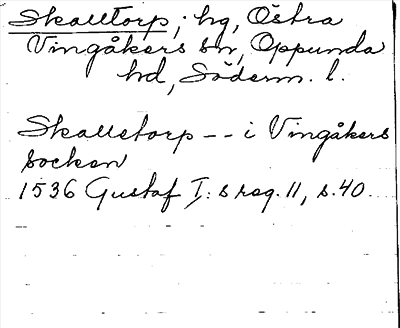 Skalltorp; hg, Östra
Vingåkers sn, Oppunda
hd, Söderm. l.
Skalletorp -- i Vingåkers
socken
1536 Gustaf I:s reg. 11, s. 40.